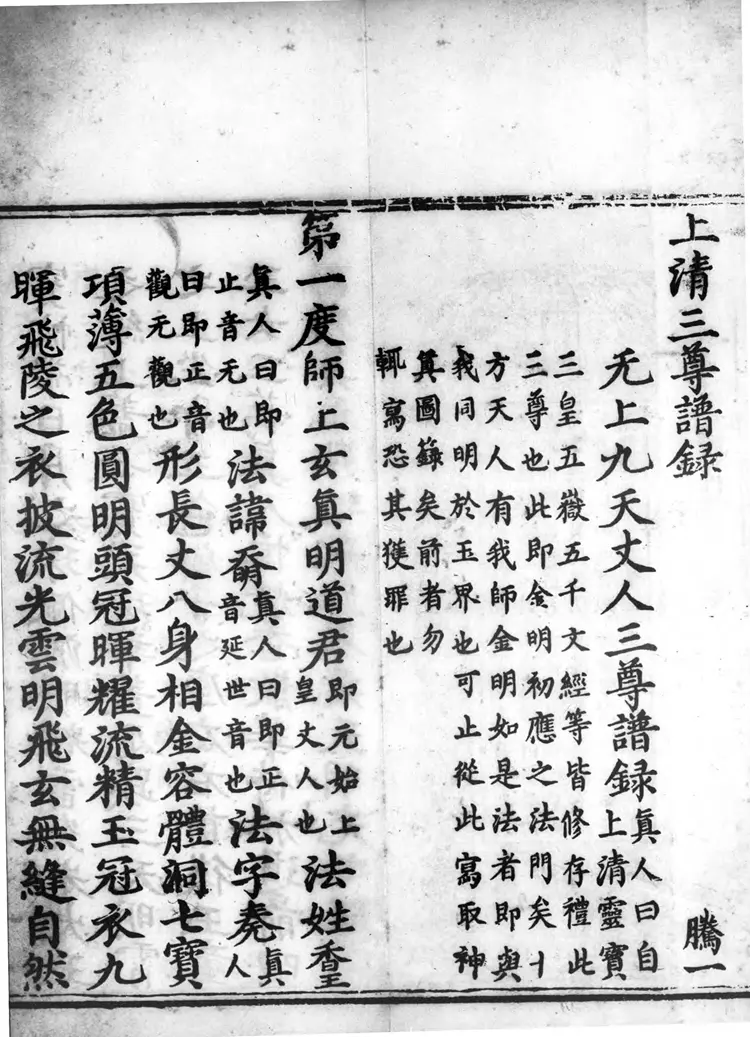 上清三尊譜録
騰一
无上九天丈人三尊譜録真人曰自上清靈寶
三皇五嶽五千文經等皆修存禮此
三尊也此即金明初應之法門矣十
方天人有我師金明如是法者即與
我同明於玉界也可止從此寫取神
真圖籙矣前者勿
輒寫恐其獲罪也
第一度師上玄真明道君即元始上皇丈人也法姓
真人曰即止音无也法諱真人曰即正音延世音也法字堯真人
曰即正音觀无觀也形長丈八身相金容體洞七寶
項薄五色圓明頭冠暉耀流精玉冠衣九
暉飛陵之衣披流光雲明飛玄無縫自然